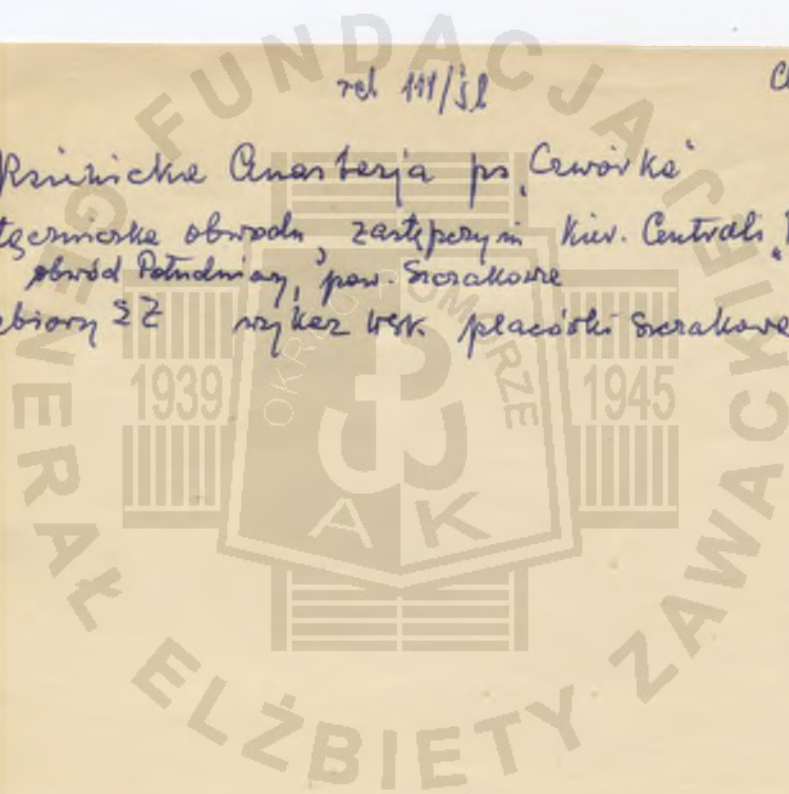 rel. 111/śl
Anastazja ps. "Czwórka"
łączniczka obwodu, zastępczyni kier. Centrali
obwód Południowy, pow. Szczakowa
zbiory ZZ wykaz wsk. placówki Szczakowa
FUNDACJA
GENERAŁ ELŻBIETY ZAWACKIEJ
OKRĘG POMORZE
1939
1945
AK